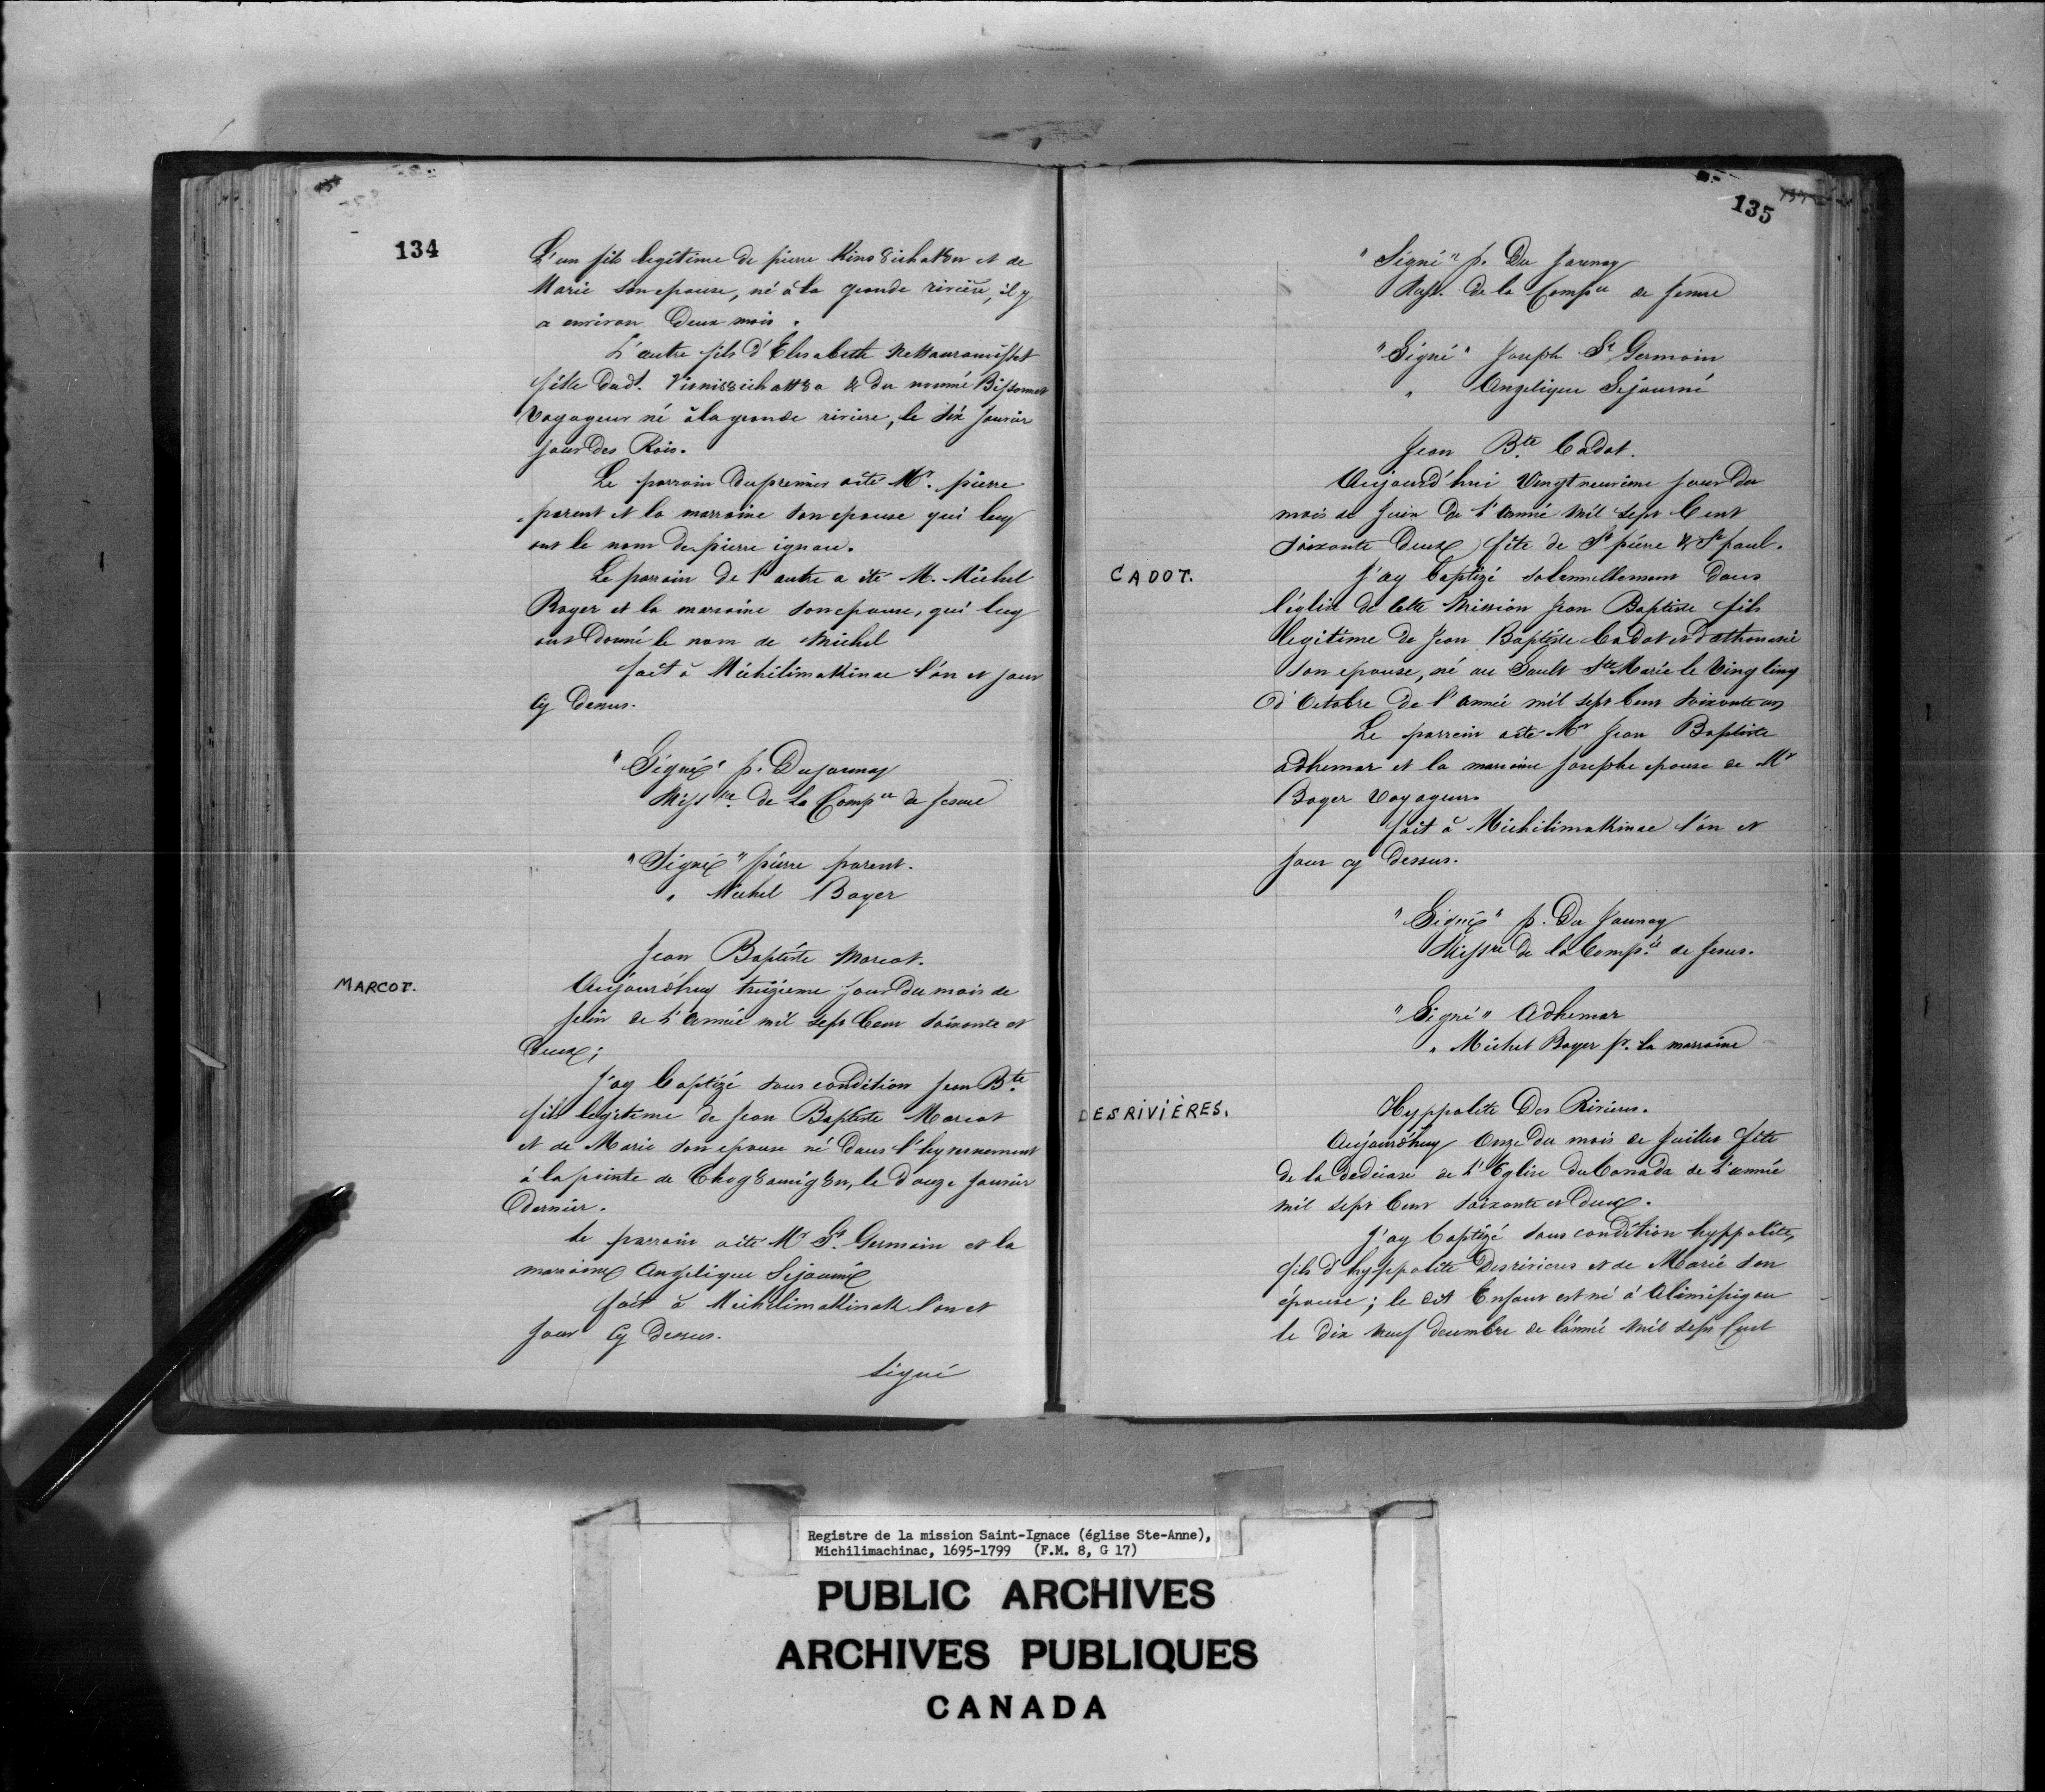 134
L'un fils legitime de pierre Kinȣichatȣn et de
Marie son epouse, né à la grande riviere, il y
a environ Deux mois.
L'autre fils d'Elisabeth
fille Dud. & du nommé Bissonnet
Voyageur né à la grande riviere, le six Janvier
jour des Rois.
Le parrain du premier a été Mr. pierre
parent et la marraine son epouse qui luy
ont le nom de pierre ignace.
Le parrain de l'autre a été M. Michel
Boyer et la marraine son epouse, qui luy
ont Donné le nom de Michel
fait à Michilimakinac l'an et jour
Cy Dessus.
"Signé" p. Dujaunay
Missre. de la Compie de Jesus
"Signé" pierre parent.
" Michel Boyer
Jean Baptiste Marcot.
MARCOT.
Aujourd'huy treizieme jour Du mois de
Juin de L'année mil sept Cent soixante et
Deux;
J'ay baptizé sous condition Jean Bte.
fils legitime de Jean Baptiste Marcot
et de Marie son epouse né Dans l'hyvernement
à la pointe de Chagȣamigȣn, le douze Janvier
Dernier.
Le parrain a été Mr St. Germain et la
marraine Angelique Sejourné
fait à Michilimakinak l'an et
Jour Cy Dessus.
signé
135
"Signé" p. Du Jaunay
Miss. de la Compie de Jesus
"Signé" Joseph St Germain
" Angelique Sejourné
Jean Bte. Cadot.
Aujourd'hui Vingt neuvième jour Du
mois de Juin De l'année mil sept Cent
soixante Deux fête de St pierre & St paul.
CADOT.
J'ay baptizé solennellement Dans
l'église de cette Mission Jean Baptiste fils
legitime de Jean Baptiste Cadot et d'athanasie
son epouse, né au Sault Ste Marie le Vingt Cinq
d'Octobre De l'année mil sept Cent soixante un
Le parrain a été Mr Jean Baptiste
adhemar et la marraine Josephe epouse de Mr
Boyer Voyageur.
fait à Michilimakinac l'an et
Jour cy Dessus.
"Signé" p. Du Jaunay
Missre De la Compie. de Jesus.
"Signé" Adhemar
" Michel Boyer pr. la marraine
DESRIVIÈRES.
Hyppolite Des Rivieres.
Aujourd'huy Onze Du mois de Juillet fête
de la dedicace de L'Eglise Du Canada de L'année
mil sept Cent soixante et Deux.
J'ay baptizé sous condition hyppolite,
fils d'hyppolite Desrivieres et de Marie son
épouse; le dit Enfant est né à Alimipigon
le dix neuf decembre de l'année Mil sept Cent
Registre de la mission Saint-Ignace (église Ste-Anne),
Michilimachinac, 1695-1799 (F.M. 8, G 17)
PUBLIC ARCHIVES
ARCHIVES PUBLIQUES
CANADA